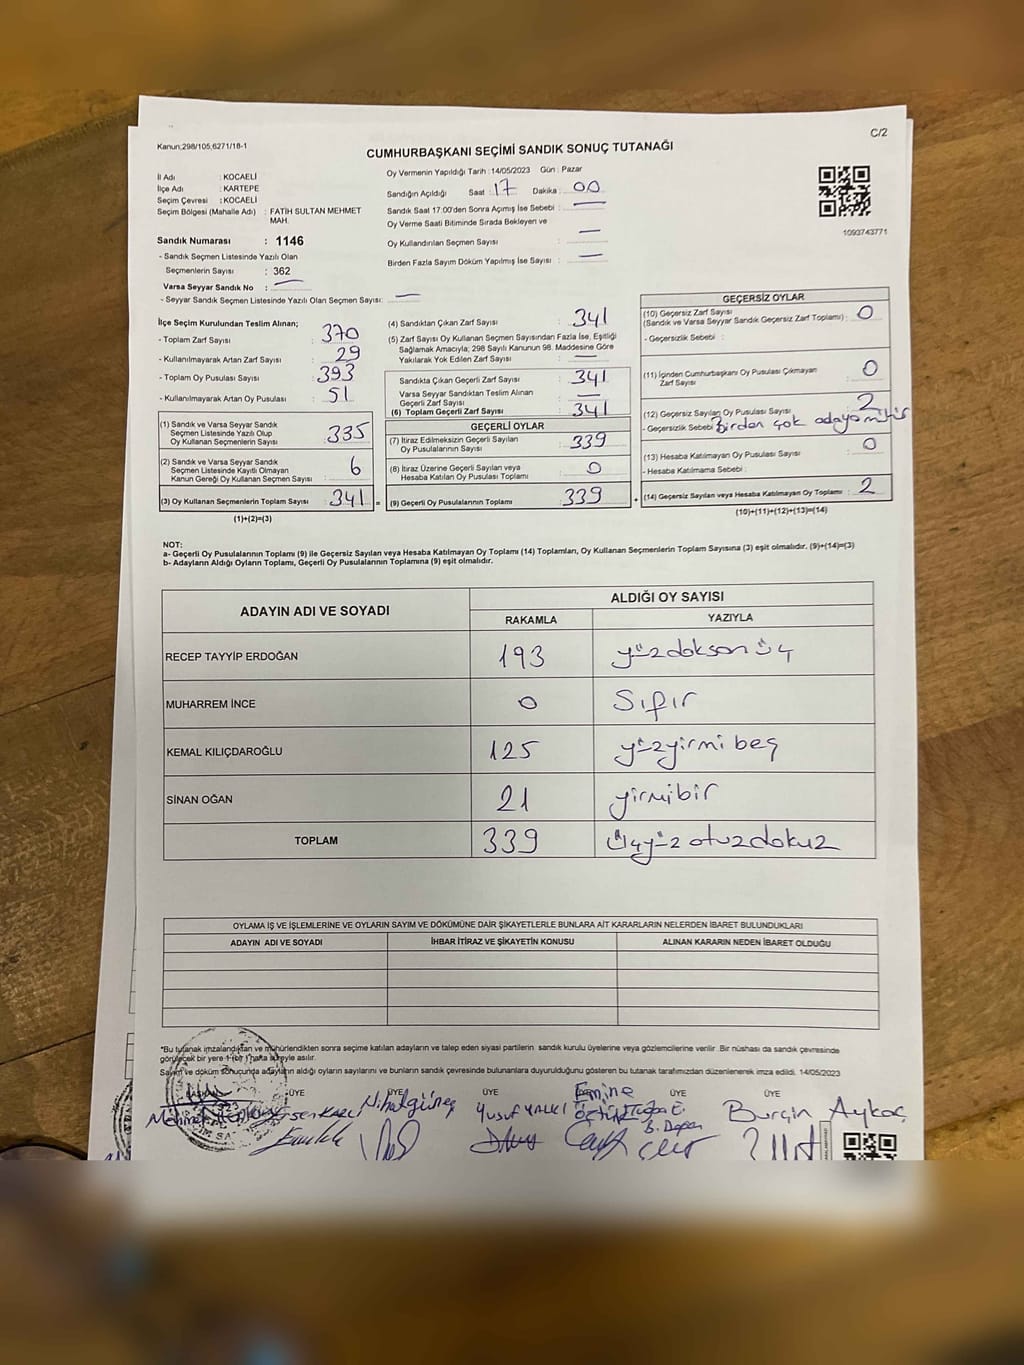 C/2
Kanun;298/105,6271/18-1
CUMHURBAŞKANI SEÇİMİ SANDIK SONUÇ TUTANAĞI
İl Adı : KOCAELİ
İlçe Adı : KARTEPE
Seçim Çevresi : KOCAELİ
Seçim Bölgesi (Mahalle Adı) : FATİH SULTAN MEHMET MAH.
Sandık Numarası : 1146
- Sandık Seçmen Listesinde Yazılı Olan
Seçmenlerin Sayısı : 362
Varsa Seyyar Sandık No : —
- Seyyar Sandık Seçmen Listesinde Yazılı Olan Seçmen Sayısı: —
Oy Vermenin Yapıldığı Tarih :14/05/2023 Gün : Pazar
Sandığın Açıldığı Saat : 17 Dakika : 00
Sandık Saat 17:00'den Sonra Açımış İse Sebebi : —
Oy Verme Saati Bitiminde Sırada Bekleyen ve
Oy Kullandırılan Seçmen Sayısı : —
Birden Fazla Sayım Döküm Yapılmış İse Sayısı : —
1093743771
İlçe Seçim Kurulundan Teslim Alınan;
- Toplam Zarf Sayısı : 370
- Kullanılmayarak Artan Zarf Sayısı : 29
- Toplam Oy Pusulası Sayısı : 393
- Kullanılmayarak Artan Oy Pusulası : 51
(1) Sandık ve Varsa Seyyar Sandık
Seçmen Listesinde Yazılı Olup
Oy Kullanan Seçmenlerin Sayısı : 335
(2) Sandık ve Varsa Seyyar Sandık
Seçmen Listesinde Kayıtlı Olmayan
Kanun Gereği Oy Kullanan Seçmen Sayısı : 6
(3) Oy Kullanan Seçmenlerin Toplam Sayısı : 341 =
(1)+(2)=(3)
(4) Sandıktan Çıkan Zarf Sayısı : 341
(5) Zarf Sayısı Oy Kullanan Seçmen Sayısından Fazla İse, Eşitliği
Sağlamak Amacıyla; 298 Sayılı Kanunun 98. Maddesine Göre
Yakılarak Yok Edilen Zarf Sayısı : —
Sandıkta Çıkan Geçerli Zarf Sayısı : 341
Varsa Seyyar Sandıktan Teslim Alınan
Geçerli Zarf Sayısı : —
(6) Toplam Geçerli Zarf Sayısı : 341
GEÇERLİ OYLAR
(7) İtiraz Edilmeksizin Geçerli Sayılan
Oy Pusulalarının Sayısı : 339
(8) İtiraz Üzerine Geçerli Sayılan veya
Hesaba Katılan Oy Pusulası Toplamı : 0
(9) Geçerli Oy Pusulalarının Toplamı : 339 +
GEÇERSİZ OYLAR
(10) Geçersiz Zarf Sayısı
(Sandık ve Varsa Seyyar Sandık Geçersiz Zarf Toplamı) : 0
- Geçersizlik Sebebi :
(11) İçinden Cumhurbaşkanı Oy Pusulası Çıkmayan
Zarf Sayısı : 0
(12) Geçersiz Sayılan Oy Pusulası Sayısı : 2
- Geçersizlik Sebebi : Birden çok adaya mühür
(13) Hesaba Katılmayan Oy Pusulası Sayısı : 0
- Hesaba Katılmama Sebebi :
(14) Geçersiz Sayılan veya Hesaba Katılmayan Oy Toplamı : 2
(10)+(11)+(12)+(13)=(14)
NOT:
a- Geçerli Oy Pusulalarının Toplamı (9) ile Geçersiz Sayılan veya Hesaba Katılmayan Oy Toplamı (14) Toplamları, Oy Kullanan Seçmenlerin Toplam Sayısına (3) eşit olmalıdır. (9)+(14)=(3)
b- Adayların Aldığı Oyların Toplamı, Geçerli Oy Pusulalarının Toplamına (9) eşit olmalıdır.
ADAYIN ADI VE SOYADI ALDIĞI OY SAYISI
RAKAMLA YAZIYLA
RECEP TAYYİP ERDOĞAN 193 yüzdoksan üç
MUHARREM İNCE 0 Sıfır
KEMAL KILIÇDAROĞLU 125 yüzyirmi beş
SİNAN OĞAN 21 yirmibir
TOPLAM 339 üçyüz otuzdokuz
OYLAMA İŞ VE İŞLEMLERİNE VE OYLARIN SAYIM VE DÖKÜMÜNE DAİR ŞİKAYETLERLE BUNLARA AİT KARARLARIN NELERDEN İBARET BULUNDUKLARI
ADAYIN ADI VE SOYADI İHBAR İTİRAZ VE ŞİKAYETİN KONUSU ALINAN KARARIN NEDEN İBARET OLDUĞU
*Bu tutanak imzalandıktan ve mühürlendikten sonra seçime katılan adayların ve talep eden siyasi partilerin sandık kurulu üyelerine veya gözlemcilerine verilir. Bir nüshası da sandık çevresinde
görülecek bir yere 1 (bir) hafta süreyle asılır.
Sayım ve döküm sonucunda adayların aldığı oyların sayılarını ve bunların sandık çevresinde bulunanlara duyurulduğunu gösteren bu tutanak tarafımızdan düzenlenerek imza edildi. 14/05/2023
BAŞKAN ÜYE ÜYE ÜYE ÜYE ÜYE
Nihal güneş Yusuf YALKI Emine Burçin Aykoç